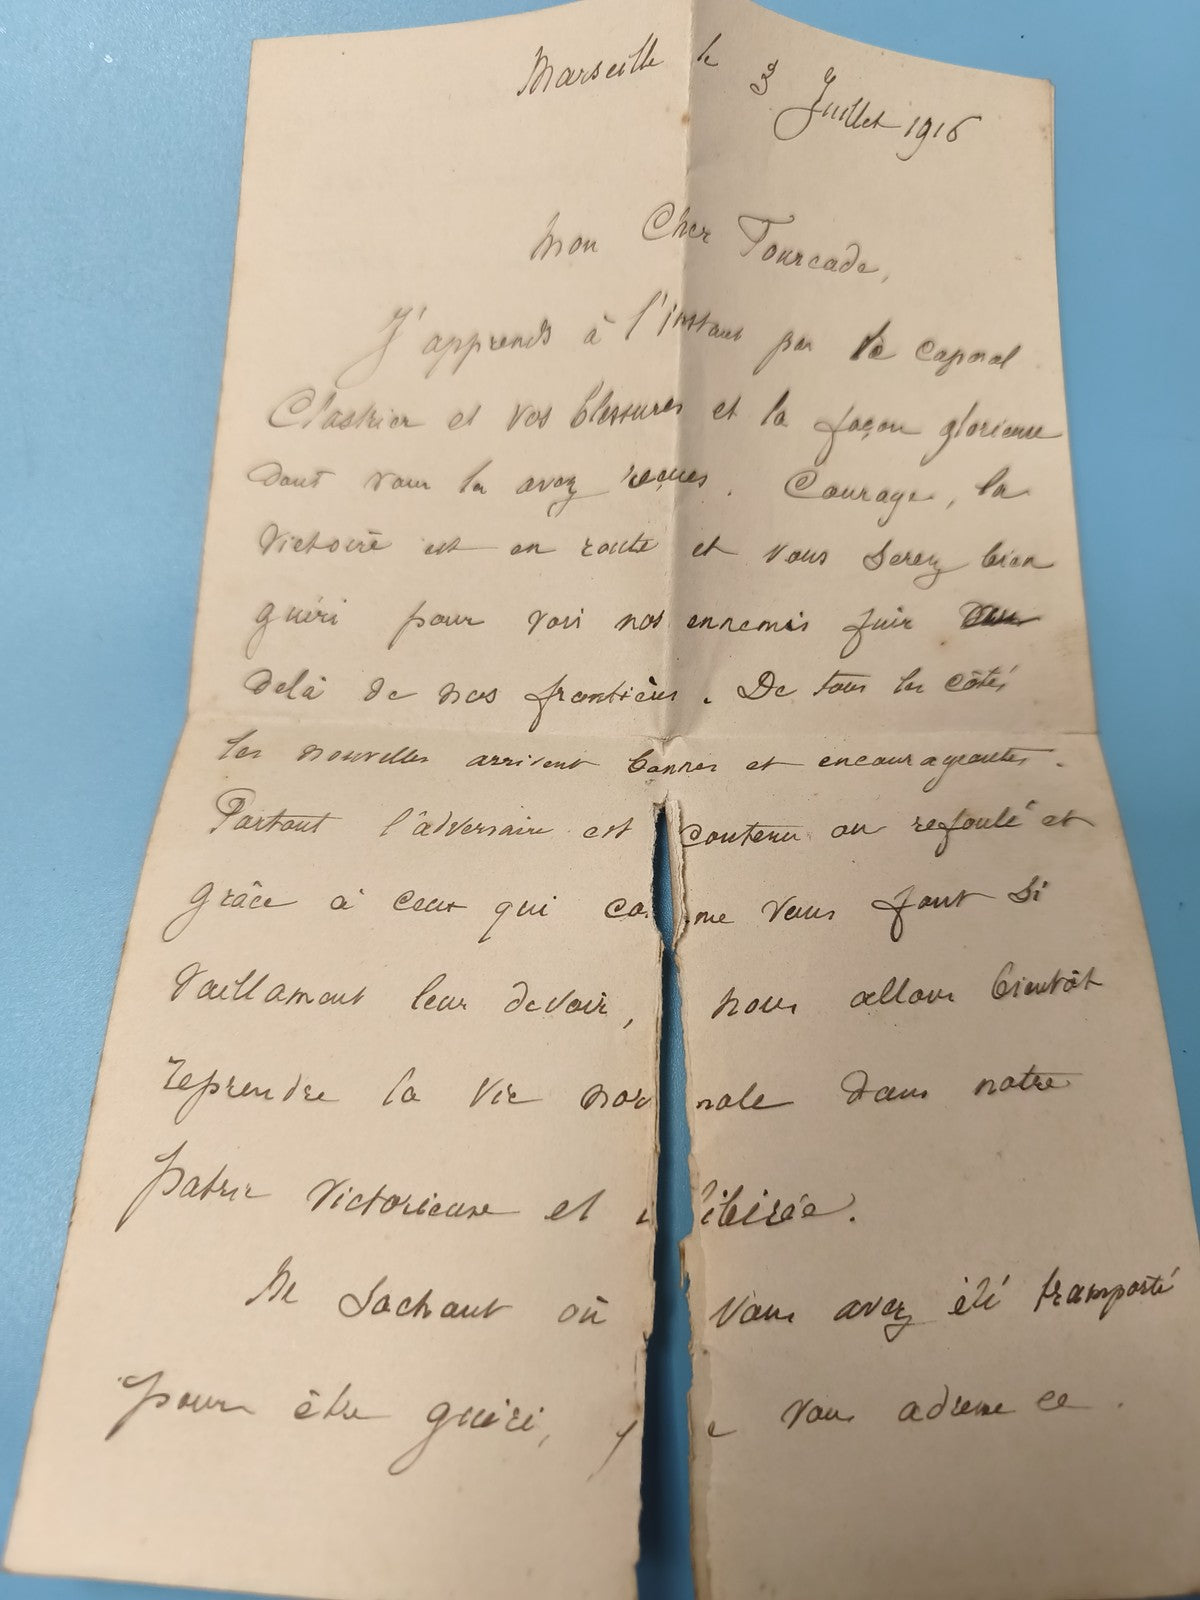 Marseille le 3 Juillet 1916
Mon Cher Fourcade,
J'apprends à l'instant par le caporal
Clastrier et vos blessures et la façon glorieuse
dont vous les avez reçues. Courage, la
Victoire est en route et vous serez bien
guéri pour voir nos ennemis fuir
delà de nos frontières. De tous les côtés
les nouvelles arrivent bonnes et encourageantes.
Partout l'adversaire est contenu ou refoulé et
grâce à ceux qui comme vous font si
vaillamment leur devoir, nous allons bientôt
reprendre la vie normale dans notre
patrie victorieuse et libérée.
Ne sachant où vous avez été transporté
pour être guéri, je vous adresse ce